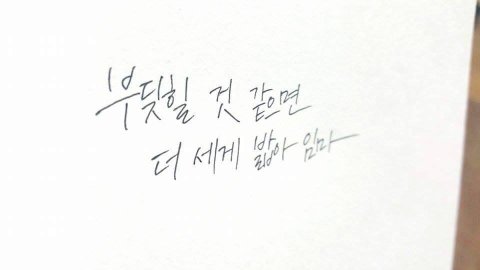 부딪힐 것 같으면
더 세게 밟아 임마